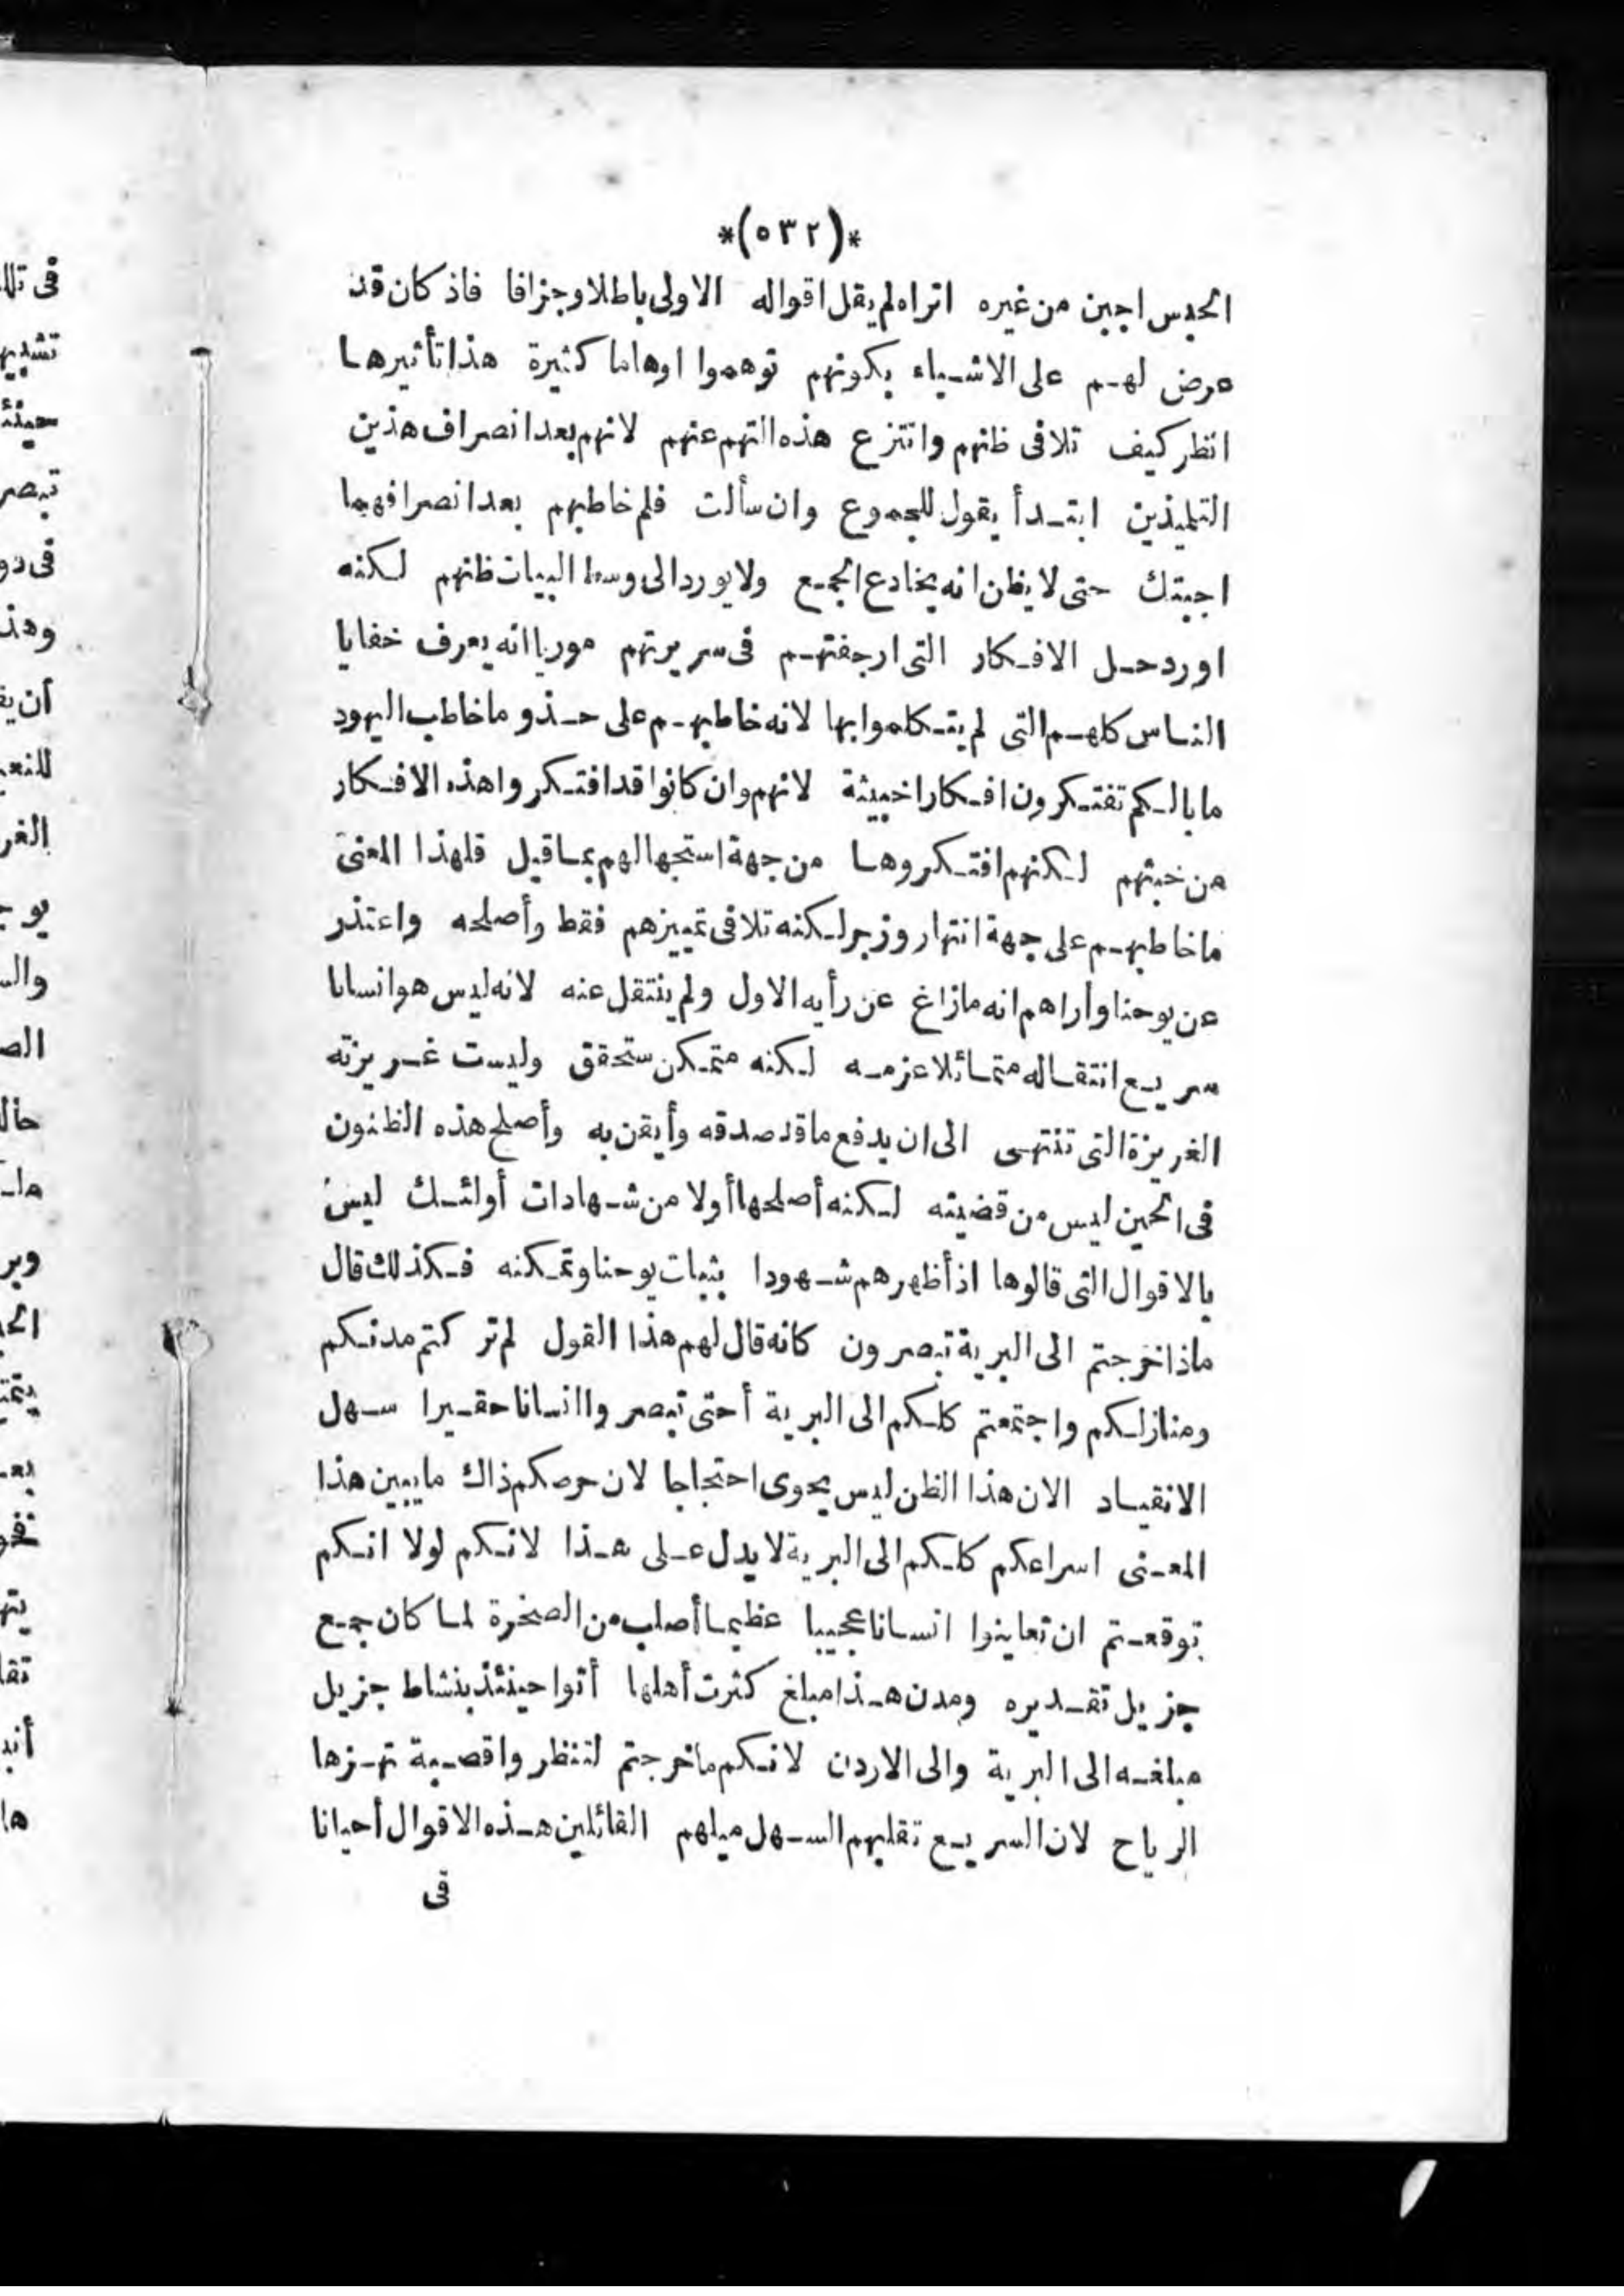 *(٥٣٢)*
الحبس اجبن من غيره اتراه لم يقل اقواله الاولى باطلا وجزافا فاذ كان قد
عرض لهم على الاشياء بكونهم توهموا اوهاما كثيرة هذا تأثيرها
انظر كيف تلافى ظنهم وانتزع هذه التهم عنهم لانهم بعد انصراف هذين
التلميذين ابتدأ يقول للجموع وان سألت فلم خاطبهم بعد انصرافهما
اجبتك حتى لا يظن انه يخادع الجميع ولا يورد الى وسط البيات ظنهم لكنه
اورد حل الافكار التى ارجفتهم فى سريرتهم موريا انه يعرف خفايا
الناس كلهم التى لم يتكلموا بها لانه خاطبهم على حذو ما خاطب اليهود
ما بالكم تفتكرون افكارا خبيثة لانهم وان كانوا قد افتكروا هذه الافكار
من خبثهم لكنهم افتكروها من جهة استجهالهم بما قيل فلهذا المعنى
ما خاطبهم على جهة انتهار وزجر لكنه تلافى تمييزهم فقط وأصلحه واعتذر
عن يوحنا وأراهم انه ما زاغ عن رأيه الاول ولم ينتقل عنه لانه ليس هو انسانا
سريع انتقاله متمائلا عزمه لكنه متمكن ستحقق وليست غريزته
الغريزة التى تنتهى الى ان يدفع ما قد صدقه وأيقن به وأصلح هذه الظنون
فى الحين ليس من قضيته لكنه أصلحها أولا من شهادات أولئك ليس
بالاقوال التى قالوها اذ أظهرهم شهودا بثبات يوحنا وتمكنه فكذلك قال
ماذا خرجتم الى البرية تبصرون كانه قال لهم هذا القول لم تركتم مدنكم
ومنازلكم واجتمعتم كلكم الى البرية أحتى تبصروا انسانا حقيرا سهل
الانقياد الان هذا الظن ليس يحوى احتجاجا لان حرصكم ذاك ما يبين هذا
المعنى اسراعكم كلكم الى البرية لا يدل على هذا لانكم لولا انكم
توقعتم ان تعاينوا انسانا عجيبا عظيما أصلب من الصخرة لما كان جمع
جزيل تقديره ومدن هذا مبلغ كثرت أهلها أتوا حينئذ بنشاط جزيل
مبلغه الى البرية والى الاردن لانكم ما خرجتم لتنظروا قصبة تهزها
الرياح لان السريع تقلبهم السهل ميلهم القائلين هذه الاقوال أحيانا
فى